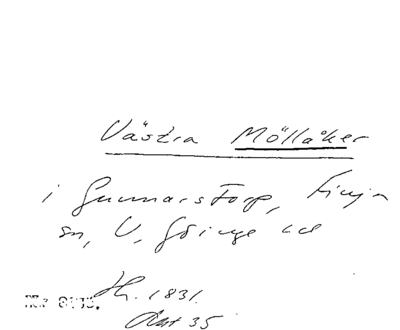 Västra Möllaåker
i Gunnarstorp, Finja
sn, V. Göinge hd
Hr. 1831.
Akt 35